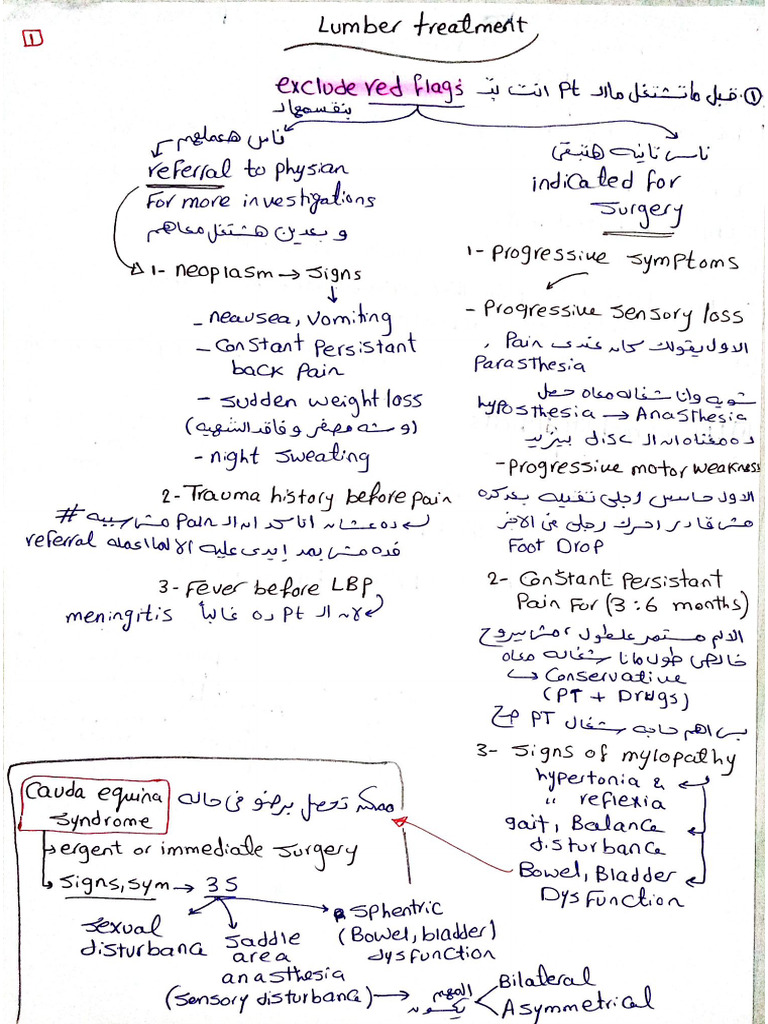 1
Lumber treatment
①. قبل ماتشتغل مع الـ Pt انت exclude red flags
بنقسمها لـ
ناس هعملهم
referral to physian
For more investigations
و بعدين هشتغل معاهم
1- neoplasm → signs
- neausea, vomiting
- constant persistant
back pain
- sudden weight loss
(وشه مصفر و فاقد الشهيه)
- night sweating
2- Trauma history before pain
ده عشان اتأكد ان الـ Pain مش سببه #
فده مش بمد إيدى عليه الا لما اعمله referral
3- Fever before LBP
لان الـ Pt ده غالباً meningitis
ناس تانيه هتبقى
indicated for
surgery
1- progressive symptoms
- Progressive sensory loss
الاول يقولك كان عندى Pain ,
Parasthesia
شويه وانا شغاله معاه حصل
hyposthesia → Anasthesia
ده معناه ان الـ disc بيزيد
- progressive motor weakness
الاول حاسس رجلى تقيله بعد كده
مش قادر احرك رجلى فى الاخر
Foot Drop
2- Constant Persistant
Pain For (3:6 months)
الالم مستمر علطول، مش بيروح
خالص طول مانا شغاله معاه
↳ Conservative
(PT + Drugs)
بس اهم حاجه شغال PT صح
3- signs of mylopathy
hypertonia &
" reflexia
gait, Balance
disturbance
Bowel, Bladder
Dysfunction
Cauda equina
syndrome
ممكن تحصل برضو فى حاله
ergent or immediate surgery
signs, sym → 3S
sexual
disturbana
saddle
area
anasthesia
(sensory disturbance) → المهم يكون
Bilateral
Asymmetrical
sphentric
(Bowel, bladder)
dysfunction